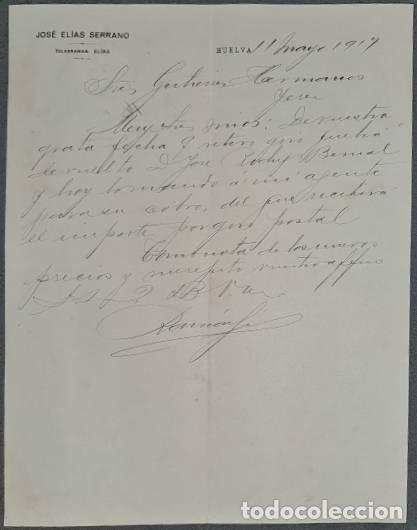 JOSÉ ELÍAS SERRANO
TELEGRAMAS: ELÍAS
HUELVA 11 Mayo 1917
Sres Gutierrez Hermanos
Jerez
Muy Sres mios: De vuestra
grata fecha 9 retiro giro fecha
devuelto D. Jose Bernal
y hoy lo mando á mi agente
para su cobro, del que recibirá
el importe por giro postal
Tomo nota de los nuevos
precios y me repito vuestro affmo
S. S. Q. B. V. M.
todocoleccion.net